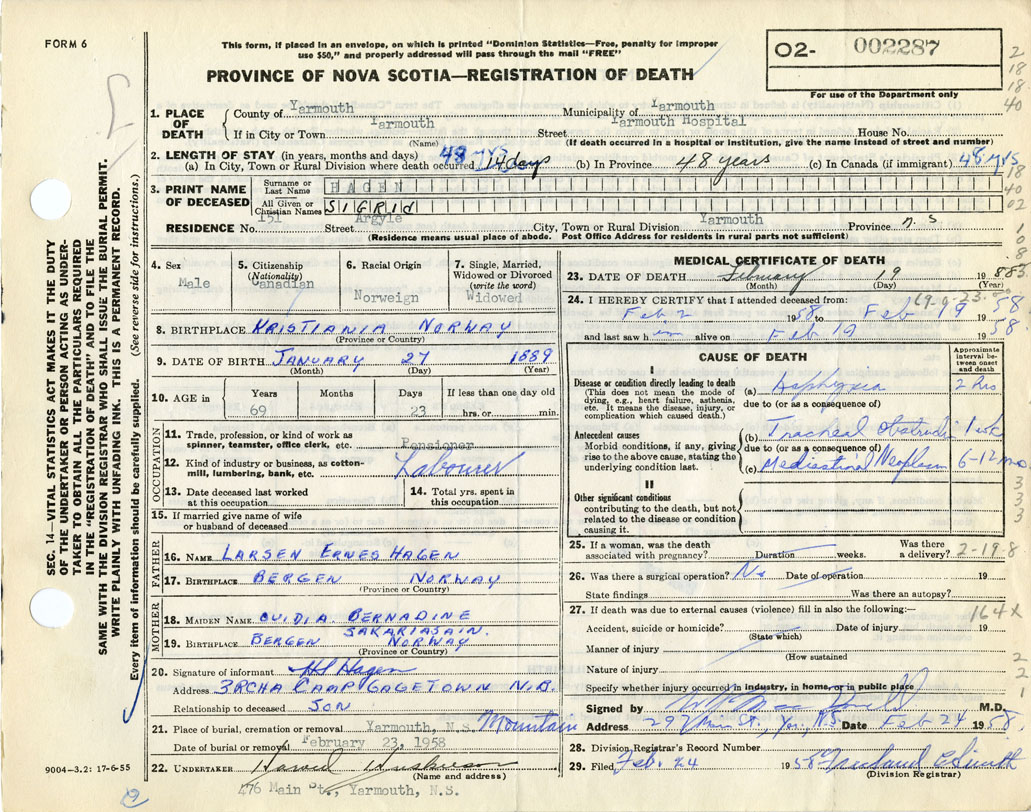 FORM 6
This form, if placed in an envelope, on which is printed "Dominion Statistics—Free, penalty for improper
use $50," and properly addressed will pass through the mail "FREE"
PROVINCE OF NOVA SCOTIA—REGISTRATION OF DEATH
O2- 002287
For use of the Department only
SEC. 14—VITAL STATISTICS ACT MAKES IT THE DUTY
OF THE UNDERTAKER OR PERSON ACTING AS UNDER-
TAKER TO OBTAIN ALL THE PARTICULARS REQUIRED
IN THE "REGISTRATION OF DEATH" AND TO FILE THE
SAME WITH THE DIVISION REGISTRAR WHO SHALL ISSUE THE BURIAL PERMIT.
WRITE PLAINLY WITH UNFADING INK. THIS IS A PERMANENT RECORD.
Every item of information should be carefully supplied. (See reverse side for instructions.)
1. PLACE OF DEATH
County of Yarmouth Municipality of Yarmouth
If in City or Town Yarmouth Street Yarmouth Hospital House No.
(Name) (If death occurred in a hospital or institution, give the name instead of street and number)
2. LENGTH OF STAY (in years, months and days) 48 yrs
(a) In City, Town or Rural Division where death occurred 14 days (b) In Province 48 years (c) In Canada (if immigrant) 48 yrs
3. PRINT NAME OF DECEASED
Surname or Last Name HAGEN
All Given or Christian Names SIGRID
RESIDENCE No. 151 Street Argyle City, Town or Rural Division Yarmouth Province N. S
(Residence means usual place of abode. Post Office Address for residents in rural parts not sufficient)
4. Sex
Male
5. Citizenship (Nationality)
Canadian
6. Racial Origin
Norweign
7. Single, Married, Widowed or Divorced (write the word)
Widowed
8. BIRTHPLACE KRISTIANIA NORWAY
(Province or Country)
9. DATE OF BIRTH JANUARY 27 1889
(Month) (Day) (Year)
10. AGE in
Years 69
Months
Days 23
If less than one day old
hrs. or min.
OCCUPATION
11. Trade, profession, or kind of work as
spinner, teamster, office clerk, etc. Pensioner
12. Kind of industry or business, as cotton-
mill, lumbering, bank, etc. Labourer
13. Date deceased last worked
at this occupation
14. Total yrs. spent in
this occupation
15. If married give name of wife
or husband of deceased
FATHER
16. NAME LARSEN ERNES HAGEN
17. BIRTHPLACE BERGEN NORWAY
(Province or Country)
MOTHER
18. MAIDEN NAME OVIDIA BERNADINE
SAKARIASAIN.
19. BIRTHPLACE BERGEN NORWAY
(Province or Country)
20. Signature of informant Hagen
Address 3RCHA CAMP GAGETOWN N.B.
Relationship to deceased SON
21. Place of burial, cremation or removal Yarmouth, N.S. Mountain
Date of burial or removal February 23, 1958
22. UNDERTAKER
(Name and address)
476 Main St., Yarmouth, N.S.
9004—3.2: 17-6-55
MEDICAL CERTIFICATE OF DEATH
23. DATE OF DEATH February 19 19 58
(Month) (Day) (Year)
69-0-23
24. I HEREBY CERTIFY that I attended deceased from:
Feb 2 19 58 to Feb 19 19 58
and last saw h im alive on Feb 19 19 58
CAUSE OF DEATH
Approximate interval between onset and death
I
Disease or condition directly leading to death
(This does not mean the mode of
dying, e.g., heart failure, asthenia,
etc. It means the disease, injury, or
complication which caused death.)
(a) Asphyxia 2 hrs
due to (or as a consequence of)
Antecedent causes
Morbid conditions, if any, giving
rise to the above cause, stating the
underlying condition last.
(b) Tracheal Obstruction 1 wk
due to (or as a consequence of)
(c) Mediastinal Neoplasm 6-12 mo
II
Other significant conditions
contributing to the death, but not
related to the disease or condition
causing it.
25. If a woman, was the death
associated with pregnancy? Duration weeks. Was there
a delivery? 2-19-8
26. Was there a surgical operation? No Date of operation 19
State findings Was there an autopsy?
27. If death was due to external causes (violence) fill in also the following:— 164x
Accident, suicide or homicide? Date of injury 19
(State which)
Manner of injury
(How sustained
Nature of injury
Specify whether injury occurred in industry, in home, or in public place
Signed by M.D.
Address 297 Main St., Yar, N.S. Date Feb 24 19 58.
28. Division Registrar's Record Number
29. Filed Feb. 24 19 58
(Division Registrar)